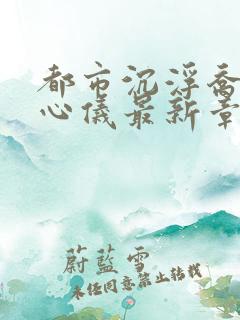 都市沉浮乔
心仪最新章
蔚蓝雪
未经同意禁止转载